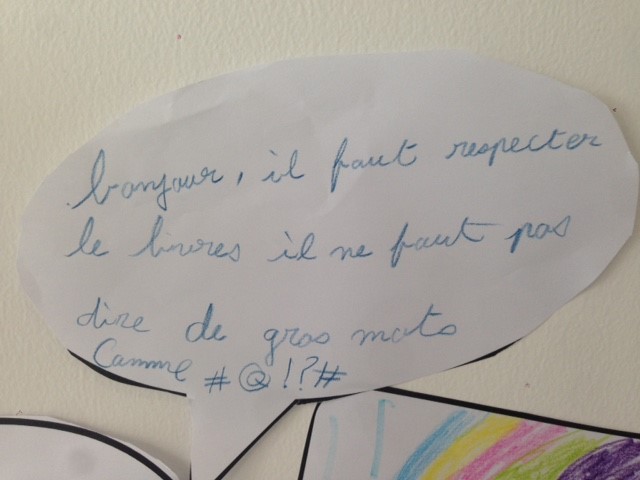 bonjour, il faut respecter
le livres il ne faut pas
dire de gros mots
Comme #@!?#